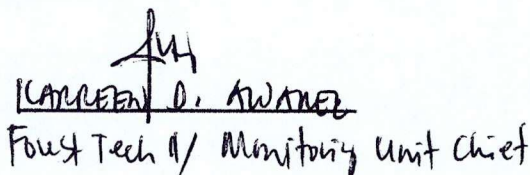 KARREEN D. ALVAREZ
Forest Tech II/ Monitoring Unit Chief